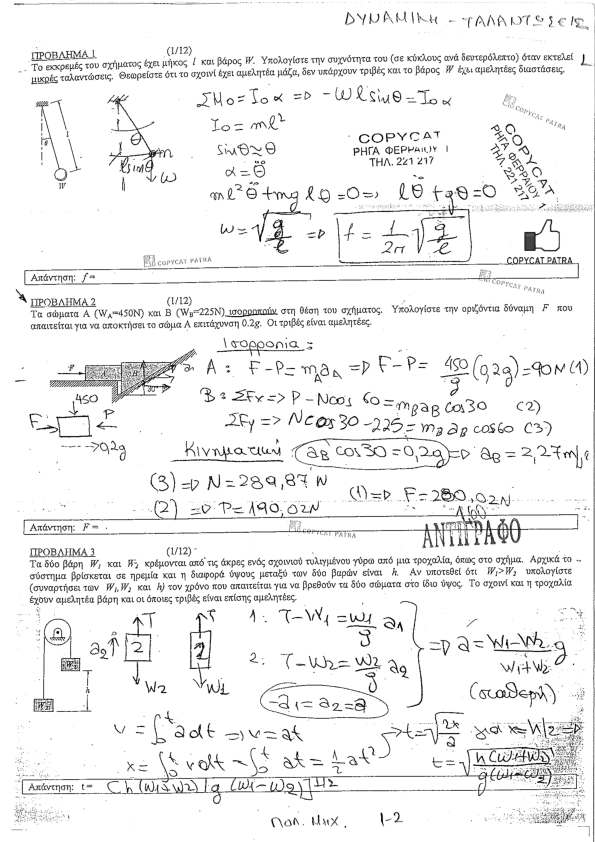 ΔΥΝΑΜΙΚΗ - ΤΑΛΑΝΤΩΣΕΙΣ
ΠΡΟΒΛΗΜΑ 1 (1/12)
Το εκκρεμές του σχήματος έχει μήκος l και βάρος W. Υπολογίστε την συχνότητα του (σε κύκλους ανά δευτερόλεπτο) όταν εκτελεί
μικρές ταλαντώσεις. Θεωρείστε ότι το σχοινί έχει αμελητέα μάζα, δεν υπάρχουν τριβές και το βάρος W έχει αμελητέες διαστάσεις.
ΣMo = Io α => -Wl sinθ = Io α
Io = ml²
sinθ ≈ θ
α = θ̈
ml² θ̈ + mg l θ = 0 => l θ̈ + gθ = 0
ω = √(g/l) => f = 1/2π √(g/l)
l sinθ
θ
m
W
W
COPYCAT
ΡΗΓΑ ΦΕΡΡΑΙΟΥ 1
ΤΗΛ. 221 217
COPYCAT PATRA
COPYCAT
ΡΗΓΑ ΦΕΡΡΑΙΟΥ 1
ΤΗΛ. 221 217
COPYCAT PATRA
COPYCAT PATRA
Απάντηση: f =
COPYCAT PATRA
ΠΡΟΒΛΗΜΑ 2 (1/12)
Τα σώματα Α (W_A=450N) και Β (W_B=225N) ισορροπούν στη θέση του σχήματος. Υπολογίστε την οριζόντια δύναμη F που
απαιτείται για να αποκτήσει το σώμα Α επιτάχυνση 0.2g. Οι τριβές είναι αμελητέες.
Ισορροπία:
A: F - P = m_A a_A => F - P = 450/g (0,2g) = 90N (1)
B: ΣFx => P - Ncos 60 = m_B a_B cos30 (2)
ΣFy => Ncos30 - 225 = m_B a_B cos60 (3)
Κινηματική: a_B cos30 = 0,2g => a_B = 2,27 m/s
(3) => N = 289,87 N
(2) => P = 190,02N
(1) => F = 280,02N
A
B
30°
450
F
P
0,2g
Απάντηση: F =
COPYCAT PATRA
ΑΝΤΙΓΡΑΦΟ
ΠΡΟΒΛΗΜΑ 3 (1/12)
Τα δύο βάρη W₁ και W₂ κρέμονται από τις άκρες ενός σχοινιού τυλιγμένου γύρω από μια τροχαλία, όπως στο σχήμα. Αρχικά το
σύστημα βρίσκεται σε ηρεμία και η διαφορά ύψους μεταξύ των δύο βαρών είναι h. Αν υποτεθεί ότι W₁>W₂ υπολογίστε
(συναρτήσει των W₁,W₂ και h) τον χρόνο που απαιτείται για να βρεθούν τα δύο σώματα στο ίδιο ύψος. Το σχοινί και η τροχαλία
έχουν αμελητέα βάρη και οι όποιες τριβές είναι επίσης αμελητέες.
a₂
T
2
W₂
W₁
h
1: T - W₁ = W₁/g a₁
2: T - W₂ = W₂/g a₂
-a₁ = a₂ = a
=> a = W₁-W₂ / W₁+W₂ g
(σταθερή)
v = ∫₀ᵗ a dt => v = at
x = ∫₀ᵗ v dt = ∫₀ᵗ at = 1/2 at²
=> t = √(2x/a) για x = h/2 =>
t = √(h(W₁+W₂)/g(W₁-W₂))
Απάντηση: t = [h(W₁+W₂)/g(W₁-W₂)]^1/2
Πολ. Μηχ. 1-2